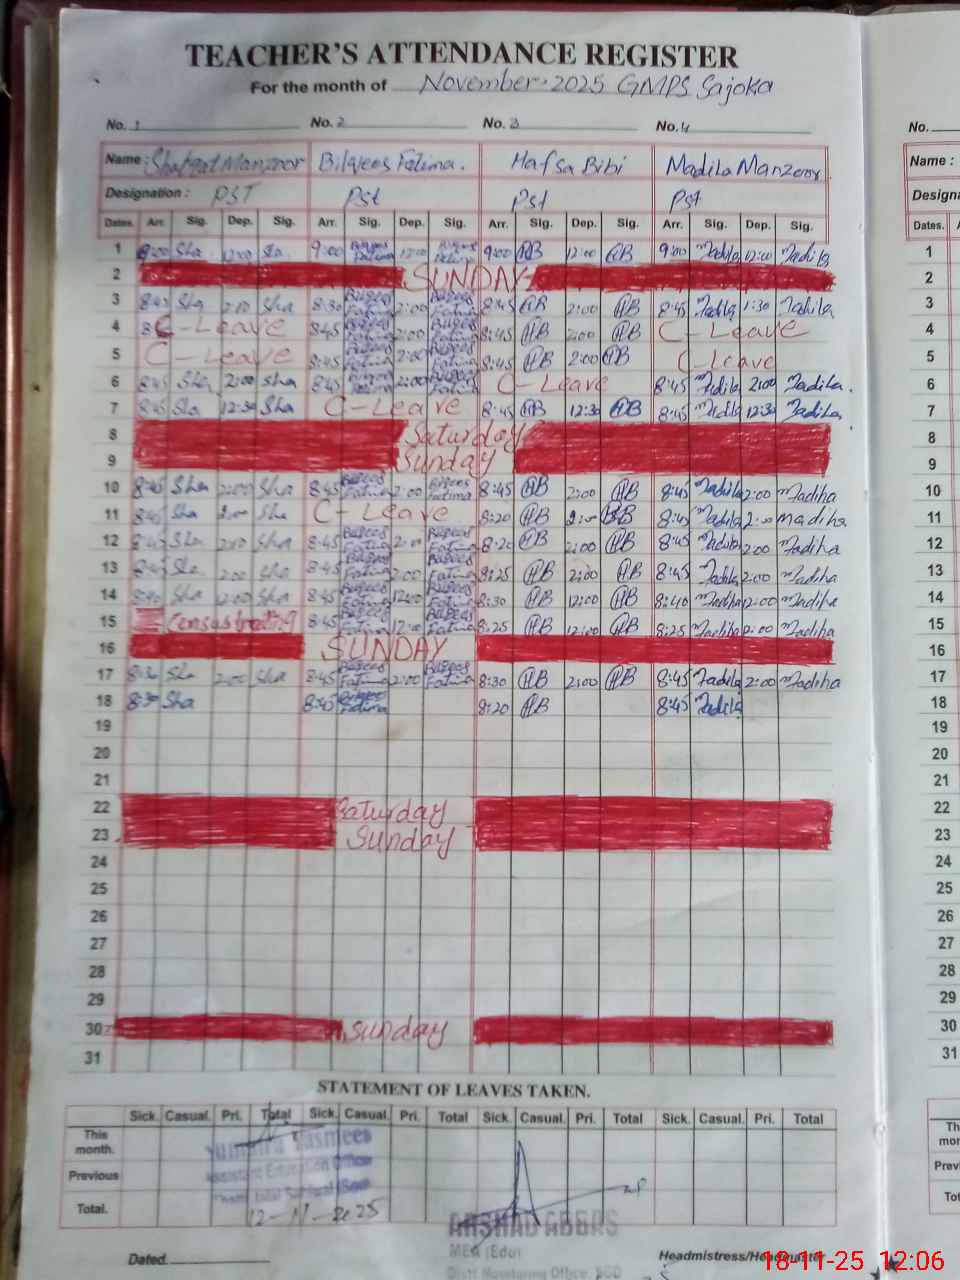 TEACHER'S ATTENDANCE REGISTER
For the month of November-2025 GMPS Sajoka
No. 1 No. 2 No. 3 No. 4 No.
Name : Shafqat Manzoor Bilqees Fatima. Hafsa Bibi Madiha Manzoor Name :
Designation : PST Pst Pst Pst
Dates. Arr. Sig. Dep. Sig. Arr. Sig. Dep. Sig. Arr. Sig. Dep. Sig. Arr. Sig. Dep. Sig. Dates.
1 9:00 Sha 12:00 Sha 9:00 Bilqees Fatima 12:00 Bilqees Fatima 9:00 HB 12:00 HB 9:00 Madiha 12:00 Madiha 1
2 SUNDAY 2
3 8:45 Sha 2:00 Sha 8:30 Bilqees Fatima 2:00 Bilqees Fatima 8:45 HB 2:00 HB 8:45 Madiha 1:30 Madiha 3
4 C-Leave 8:45 Bilqees Fatima 2:00 Bilqees Fatima 8:45 HB 2:00 HB C-Leave 4
5 C-Leave 8:45 Bilqees Fatima 2:00 Bilqees Fatima 8:45 HB 2:00 HB C-Leave 5
6 8:45 Sha 2:00 Sha 8:45 Bilqees Fatima 2:00 Bilqees Fatima C-Leave 8:45 Madiha 2:00 Madiha 6
7 8:45 Sha 12:30 Sha C-Leave 8:45 HB 12:30 HB 8:45 Madiha 12:30 Madiha 7
8 Saturday 8
9 Sunday 9
10 8:45 Sha 2:00 Sha 8:45 Bilqees Fatima 2:00 Bilqees Fatima 8:45 HB 2:00 HB 8:45 Madiha 2:00 Madiha 10
11 8:45 Sha 2:00 Sha C-Leave 8:20 HB 2:00 HB 8:45 Madiha 2:00 Madiha 11
12 8:45 Sha 2:00 Sha 8:45 Bilqees Fatima 2:00 Bilqees Fatima 8:20 HB 2:00 HB 8:45 Madiha 2:00 Madiha 12
13 8:45 Sha 2:00 Sha 8:45 Bilqees Fatima 2:00 Bilqees Fatima 8:25 HB 2:00 HB 8:45 Madiha 2:00 Madiha 13
14 8:40 Sha 12:00 Sha 8:45 Bilqees Fatima 12:00 Bilqees Fatima 8:30 HB 12:00 HB 8:40 Madiha 12:00 Madiha 14
15 8:45 Bilqees Fatima 12:00 Bilqees Fatima 8:25 HB 12:00 HB 8:25 Madiha 12:00 Madiha 15
16 SUNDAY 16
17 8:30 Sha 2:00 Sha 8:45 Bilqees Fatima 2:00 Bilqees Fatima 8:30 HB 2:00 HB 8:45 Madiha 2:00 Madiha 17
18 8:30 Sha 8:45 Bilqees Fatima 8:20 HB 8:45 Madiha 18
19 19
20 20
21 21
22 Saturday 22
23 Sunday 23
24 24
25 25
26 26
27 27
28 28
29 29
30 Sunday 30
31 31
STATEMENT OF LEAVES TAKEN.
Sick. Casual. Pri. Total Sick. Casual. Pri. Total Sick. Casual. Pri. Total Sick. Casual. Pri. Total
This month.
Previous
Total.
Assistant Education Officer
12-11-2025
ARSHAD ABBAS
MEA (Edu)
Distt Monitoring Office, SGD
Dated. Headmistress/Headmaster
18-11-25 12:06